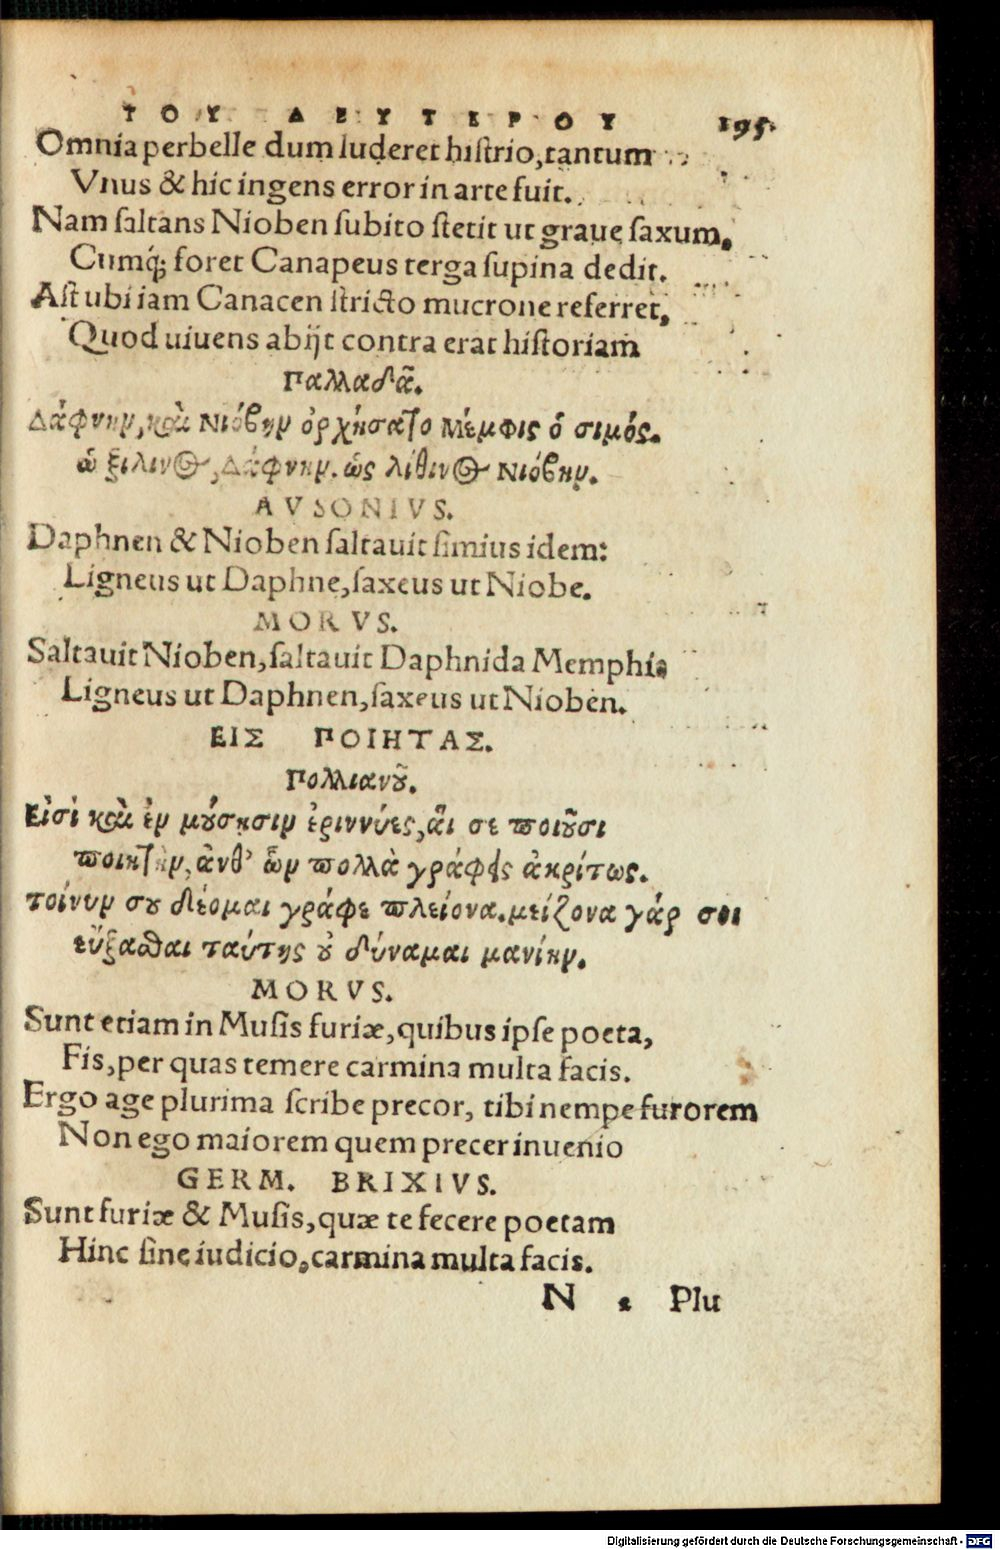 ΤΟΥ ΔΕΥΤΕΡΟΥ 195.
Omnia perbelle dum luderet histrio, tantum
Vnus & hic ingens error in arte fuit.
Nam saltans Nioben subito stetit ut graue saxum,
Cumq; foret Canapeus terga supina dedit.
Ast ubi iam Canacen stricto mucrone referret,
Quod uiuens abijt contra erat historiam
Παλλαδᾶ.
Δάφνην, καὶ Νιόβην ὀρχήσατο Μέμφις ὁ σιμός.
ὡ ξιλινος, Δάφνην. ὡς λίθινος Νιόβην.
AVSONIVS.
Daphnen & Nioben saltauit simius idem:
Ligneus ut Daphne, saxeus ut Niobe.
MORVS.
Saltauit Nioben, saltauit Daphnida Memphis
Ligneus ut Daphnen, saxeus ut Nioben.
ΕΙΣ ΠΟΙΗΤΑΣ.
Πολλιανοῦ.
Εἰσὶ καὶ ἐν μούσησιν ἐριννύες, αἵ σε ποιοῦσι
ποιητὴν, ἀνθ' ὧν πολλὰ γράφεις ἀκρίτως.
τοίνυν σου δέομαι γράφε πλείονα. μείζονα γάρ σοι
εὔξασθαι ταύτης οὐ δύναμαι μανίην.
MORVS.
Sunt etiam in Musis furiæ, quibus ipse poeta,
Fis, per quas temere carmina multa facis.
Ergo age plurima scribe precor, tibi nempe furorem
Non ego maiorem quem precer inuenio
GERM. BRIXIVS.
Sunt furiæ & Musis, quæ te fecere poetam
Hinc sine iudicio, carmina multa facis.
N 2 Plu
Digitalisierung gefördert durch die Deutsche Forschungsgemeinschaft - DFG